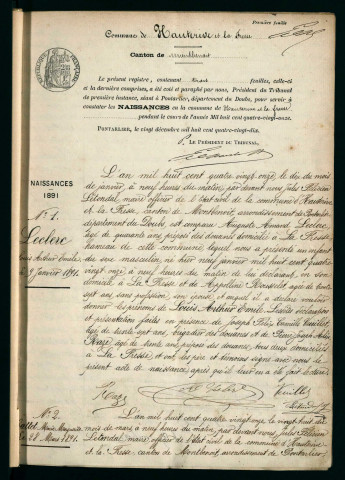 Première feuille
Commune de Hauterive et la Fresse
Canton de Montbenoit
Le présent registre, contenant feuilles, celle-ci
et la dernière comprises, a été coté et paraphé par nous, Président du Tribunal
de première instance, séant à Pontarlier, département du Doubs, pour servir à
constater les NAISSANCES en la commune de Hauterive et la Fresse
pendant le cours de l'année Mil huit cent quatre-vingt-onze.
PONTARLIER, le vingt décembre mil huit cent quatre-vingt-dix.
P. LE PRÉSIDENT DU TRIBUNAL,
NAISSANCES
1891
N° 1.
Leclerc
Louis Arthur Emile
9 janvier 1891.
L'an mil huit cent quatre vingt onze le dix du mois
de janvier à neuf heures du matin, par devant nous Jules
Létondal, maire officier de l'état civil de la commune d'Hauterive
et la Fresse, canton de Montbenoit, arrondissement de Pontarlier
département du Doubs, est comparu Auguste Amand Leclerc,
âgé de quarante ans, préposé des douanes domicilié à La Fresse
hameau de cette commune lequel nous a présenté un enfant
du sexe masculin, né hier neuf janvier mil huit cent quatre
vingt onze à neuf heures du matin de lui déclarant, en son
domicile à La Fresse et de Appoline Rousselot âgée de trente
sept ans sans profession, son épouse et auquel il a déclaré vouloir
donner les prénoms de Louis Arthur Emile. Les dites déclaration et
présentation faites en présence de Joseph
âgé de trente ans, brigadier des douanes et de
âgé de trente ans, préposé des douanes, tous deux domiciliés
à La Fresse et ont les père et témoins signé avec nous le
présent acte de naissance, après qu'il leur en a été fait lecture.
N° 2.
28 Mars 1891.
L'an mil huit cent quatre vingt onze le vingt huit du
mois de mars à neuf heures du matin, par devant nous Jules
Létondal, maire officier de l'état civil de la commune d'Hauterive
et la Fresse, canton de Montbenoit, arrondissement de Pontarlier